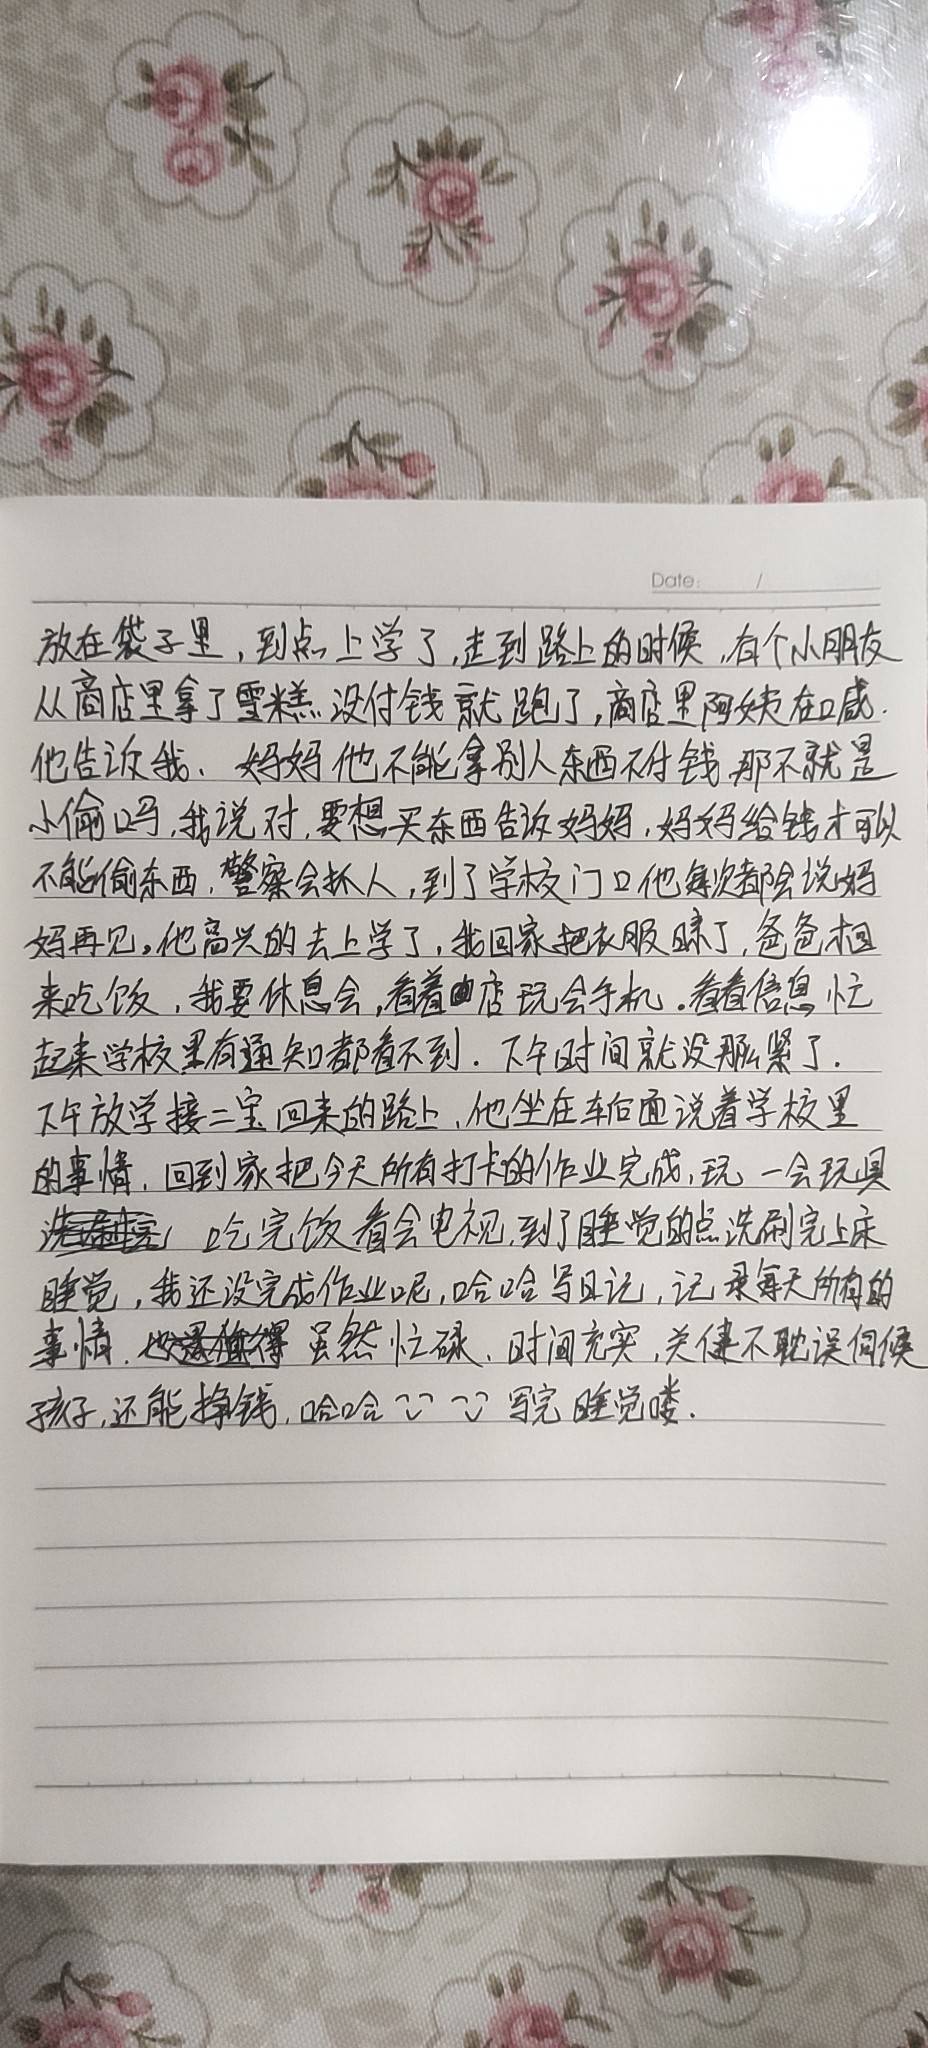 Date: /
放在袋子里，到点上学了，走到路上的时候，有个小朋友
从商店里拿了雪糕没付钱就跑了，商店里阿姨在喊.
他告诉我、妈妈他不能拿别人东西不付钱，那不就是
小偷吗，我说对，要想买东西告诉妈妈，妈妈给钱才可以
不能偷东西，警察会抓人，到了学校门口他每次都会说妈
妈再见。他高兴的去上学了，我回家把衣服晾了，爸爸
来吃饭，我要休息会，看着店玩会手机。看看信息忙
起来学校里有通知都看不到．下午时间就没那么紧了．
下午放学接二宝回来的路上，他坐在车后面说着学校里
的事情，回到家把今天所有打卡的作业完成，玩一会玩具
吃完饭看会电视，到了睡觉的点洗刷完上床
睡觉，我还没完成作业呢，哈哈写日记，记录每天所有的
事情．虽然忙碌、时间充实，关健不耽误伺候
孩子，还能挣钱，哈哈 写完睡觉喽．